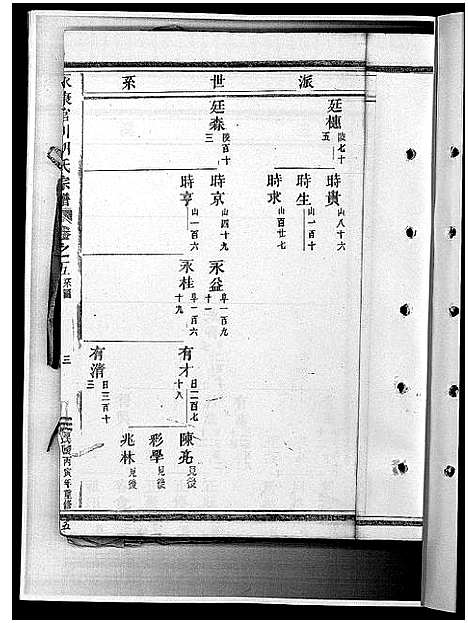 派世系
廷櫶 陵七十五
廷森 陵百十三
時貴 山八十六
時生 山一百十
時求 山百廿七
時京 山四十九
時亨 山一百六
永益 阜一百九十一
永桂 阜一百六十九
有才 日二百七十八
有清 日三百十三
陳亮 見後
彩學 見後
兆林 見後
永康官川胡氏宗譜 卷之二五 系圖
三
民國丙寅年重修
五